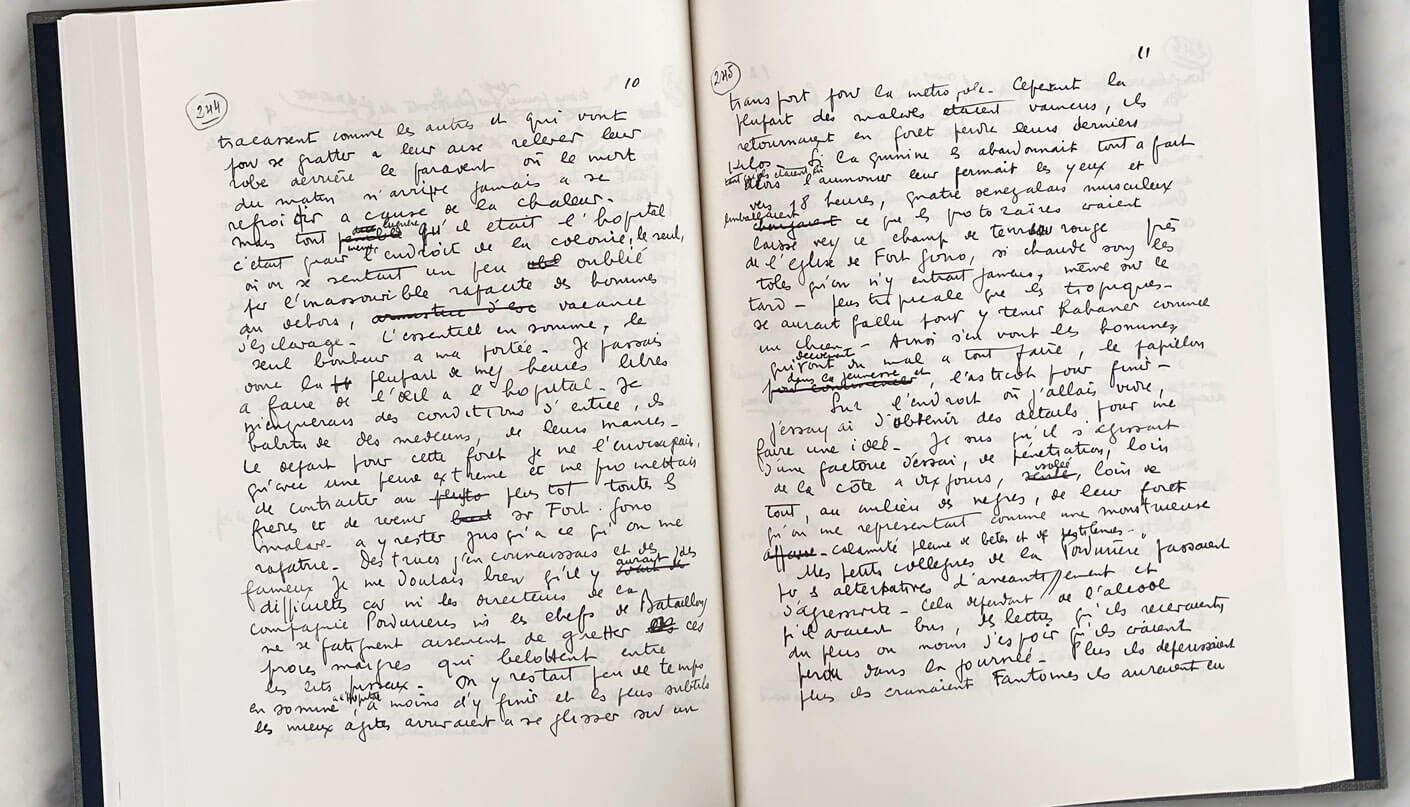 244
10
tracassent comme les autres et qui vont
pour se gratter a leur aise relever leur
robe derrière le paravent où le mort
du matin n'arrive jamais a se
refroidir a cause de la chaleur.
mais tout qu'il etait l'hopital
c'etait l'endroit de la colonie, le seul,
où on se sentait un peu oublié
par l'inassouvible rapacité des hommes
au dehors, vacance
d'esclavage - L'essentiel en somme, le
seul bonheur a ma portée - Je passais
donc la plupart de mes heures libres
a faire de l'œil a l'hopital - Je
m'enquerais des conditions d'entrée, des
habitudes des medecins, de leurs manies -
Le depart pour cette foret je ne l'envisageais,
qu'avec une peine extreme et me promettais
de contracter au plus tot toutes les
fievres et de revenir sur Fort-Gono
malade - a y rester jusqu'a ce qu'on me
rapatrie - Des trucs j'en connaissais et des
fameux Je me doutais bien qu'il y aurait des
difficultes car ni les directeurs de la
compagnie Pordurière ni les chefs de Bataillon
ne se fatiguent aisement de guetter ces
proies maigres qui belottent entre
les lits pisseux - On y restait peu de temps
en somme a l'hopital, a moins d'y finir et les plus subtils
les mieux agités arrivaient a se glisser sur un
245
11
transport pour la metropole - Cependant la
plupart des malades etaient vaincus, ils
retournaient en foret perdre leurs derniers
kilos - Si la quinine les abandonnait tout a fait
alors l'aumonier leur fermait les yeux et
vers 18 heures, quatre senegalais musculeux
emballaient
ce que les protozoaires avaient
laissé vers le champ de terre rouge près
de l'Eglise de Fort Gono, si chaude sous les
toles qu'on n'y entrait jamais, même sur le
tard - plus tropicale que les tropiques -
se aurait fallu pour y tenir haleter comme
un chien - Ainsi s'en vont les hommes
qui ont du mal a tout faire, le papillon
dans la jeunesse et l'asticot pour finir -
Sur l'endroit où j'allais vivre,
j'essayai d'obtenir des détails pour me
faire une idée - Je sus qu'il s'agissait
d'une factorie d'essai, de pénétration, loin
de la côte a dix jours, isolée, loin de
tout, au milieu des negres, de leur foret
qu'on me representait comme une monstrueuse
calamité pleine de betes et de pestilences -
Mes petits collegues de la "Pordurière" passaient
par des alternatives d'aneantissement et
d'agressivité - Cela dependait de l'alcool
qu'ils avaient bu, des lettres qu'ils recevaient
du plus ou moins d'espoir qu'ils avaient
perdu dans la journée - Plus ils deperissaient
plus ils cranaient Fantomes ils auraient eu